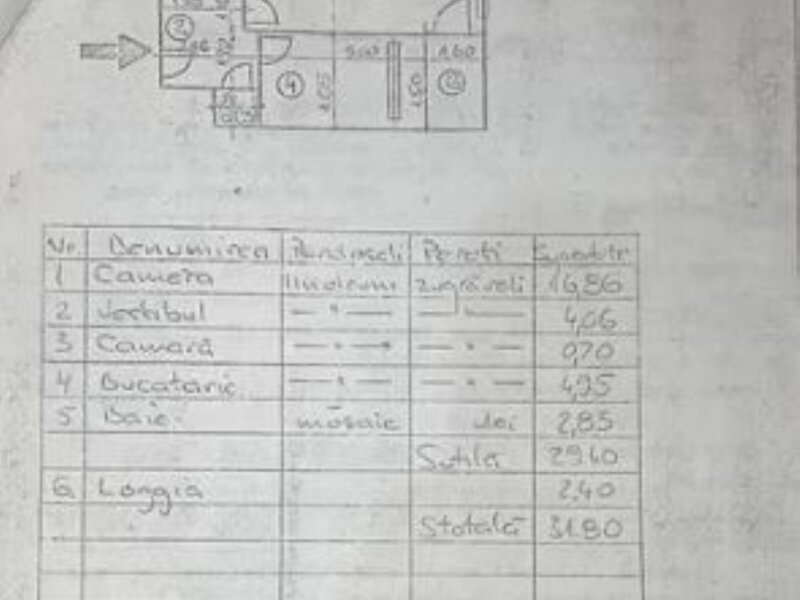 2
4
6
1,60
Nr. Denumirea Pardoseli Pereti Suprafete
1 Camera linoleum zugrăveli 16,86
2 Vestibul — " — — " — 4,06
3 Camară — " — — " — 0,70
4 Bucatarie — " — — " — 4,95
5 Baie mosaic ulei 2,85
Sutila 29.40
6 Loggia 2,40
Stotală 31.80